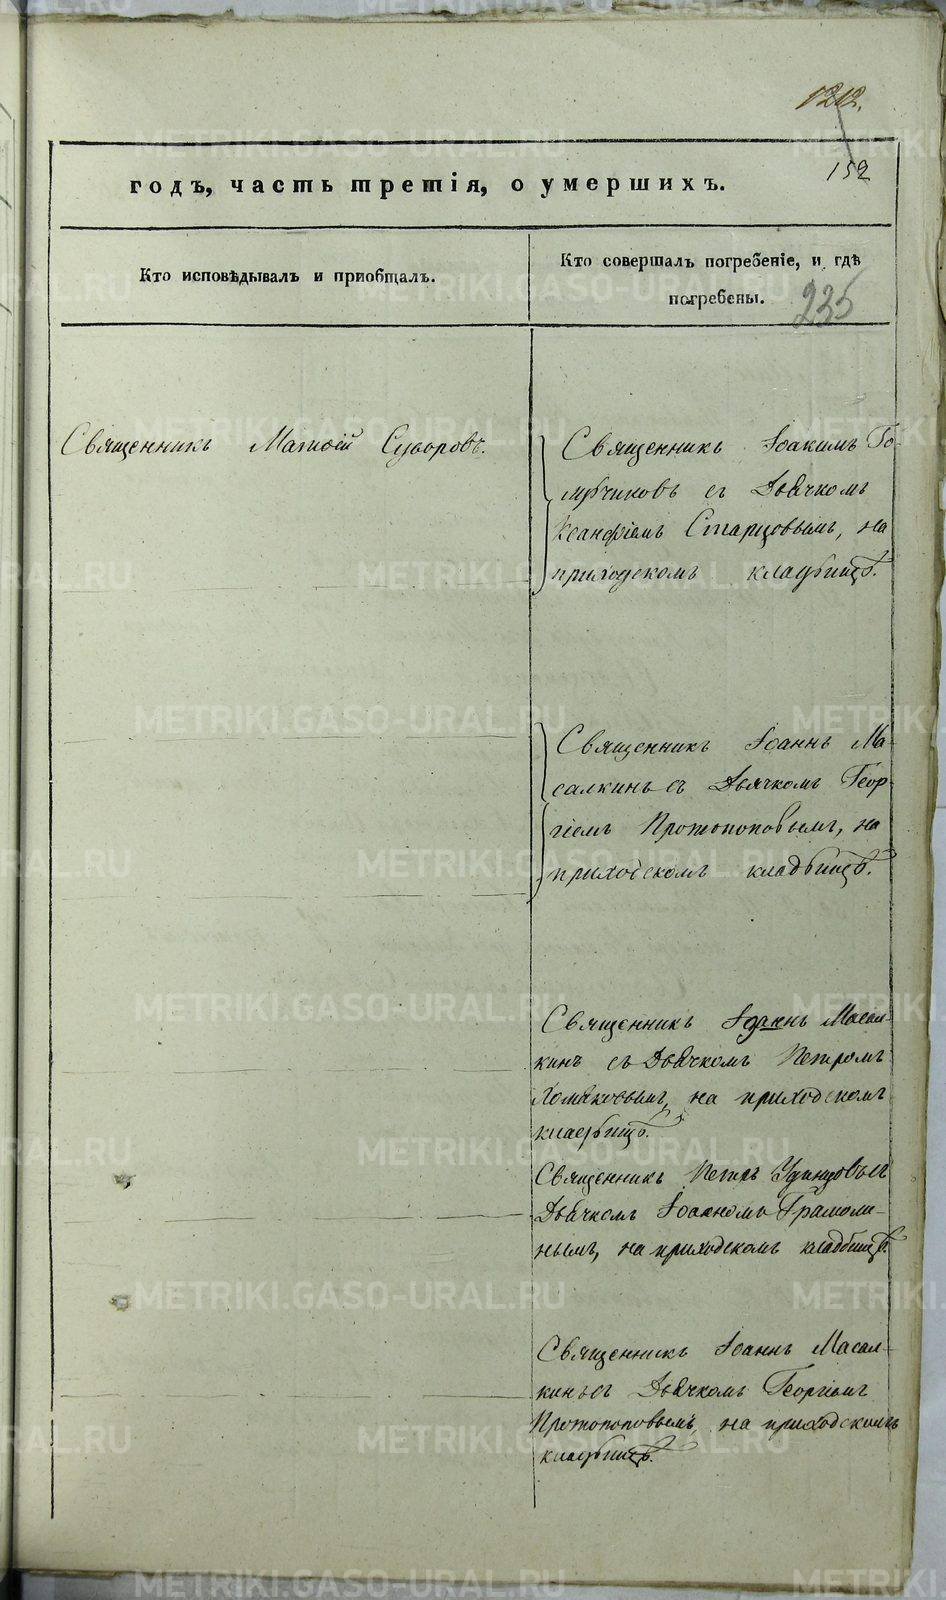 1212.
152
годъ, часть третія, о умершихъ.
Кто исповѣдывалъ и пріобщалъ.
Кто совершалъ погребеніе, и гдѣ
погребены.
235
Священникъ Матѳей Суворовъ.
Священникъ Іоакимъ Го-
лубчиковъ съ Дьячкомъ
Ксанфіемъ Старцовымъ, на
приходскомъ кладбищѣ.
Священникъ Іоаннъ Ма-
салкинъ съ Дьячкомъ Геор-
гіемъ Протопоповымъ, на
приходскомъ кладбищѣ.
Священникъ Іоаннъ Масал-
кинъ съ Дьячкомъ Петромъ
Хомяковымъ, на приходскомъ
кладбищѣ.
Священникъ Петръ Удинцовъ съ
Дьячкомъ Іоанномъ Грамоли-
нымъ, на приходскомъ кладбищѣ.
Священникъ Іоаннъ Масал-
кинъ съ Дьячкомъ Георгіемъ
Протопоповымъ, на приходскомъ
кладбищѣ.
METRIKI.GASO-URAL.RU